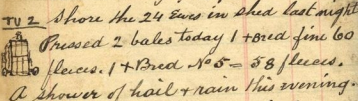 TU 2 Shore the 24 Ewes in shed last night
Pressed 2 bales today 1 ½ Bred fine 60
fleeces. 1 ½ Bred No 5 = 58 fleeces.
A shower of hail + rain this evening.